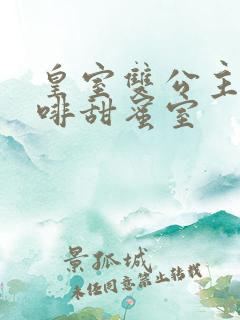 皇室雙公主
啡甜蜜室
景孤城
未经同意禁止转载